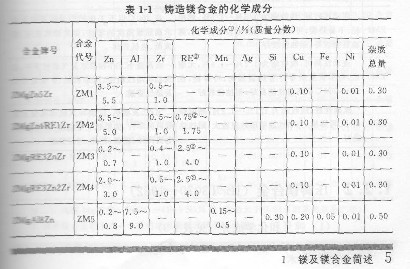 表 1-1 铸造镁合金的化学成分
合金牌号 合金代号 化学成分①/%(质量分数)
Zn Al Zr RE② Mn Ag Si Cu Fe Ni 杂质总量
ZMgZn5Zr ZM1 3.5~5.5 — 0.5~1.0 — — — — 0.10 — 0.01 0.30
ZMgZn4RE1Zr ZM2 3.5~5.0 — 0.5~1.0 0.75②~1.75 — — — 0.10 — 0.01 0.30
ZMgRE3ZnZr ZM3 0.2~0.7 — 0.4~1.0 2.5②~4.0 — — — 0.10 — 0.01 0.30
ZMgRE3Zn2Zr ZM4 2.0~3.0 — 0.5~1.0 2.5②~4.0 — — — 0.10 — 0.01 0.30
ZM5 0.2~0.8 7.5~9.0 — — 0.15~0.5 — 0.30 0.20 0.05 0.01 0.50
1 镁及镁合金简述 5